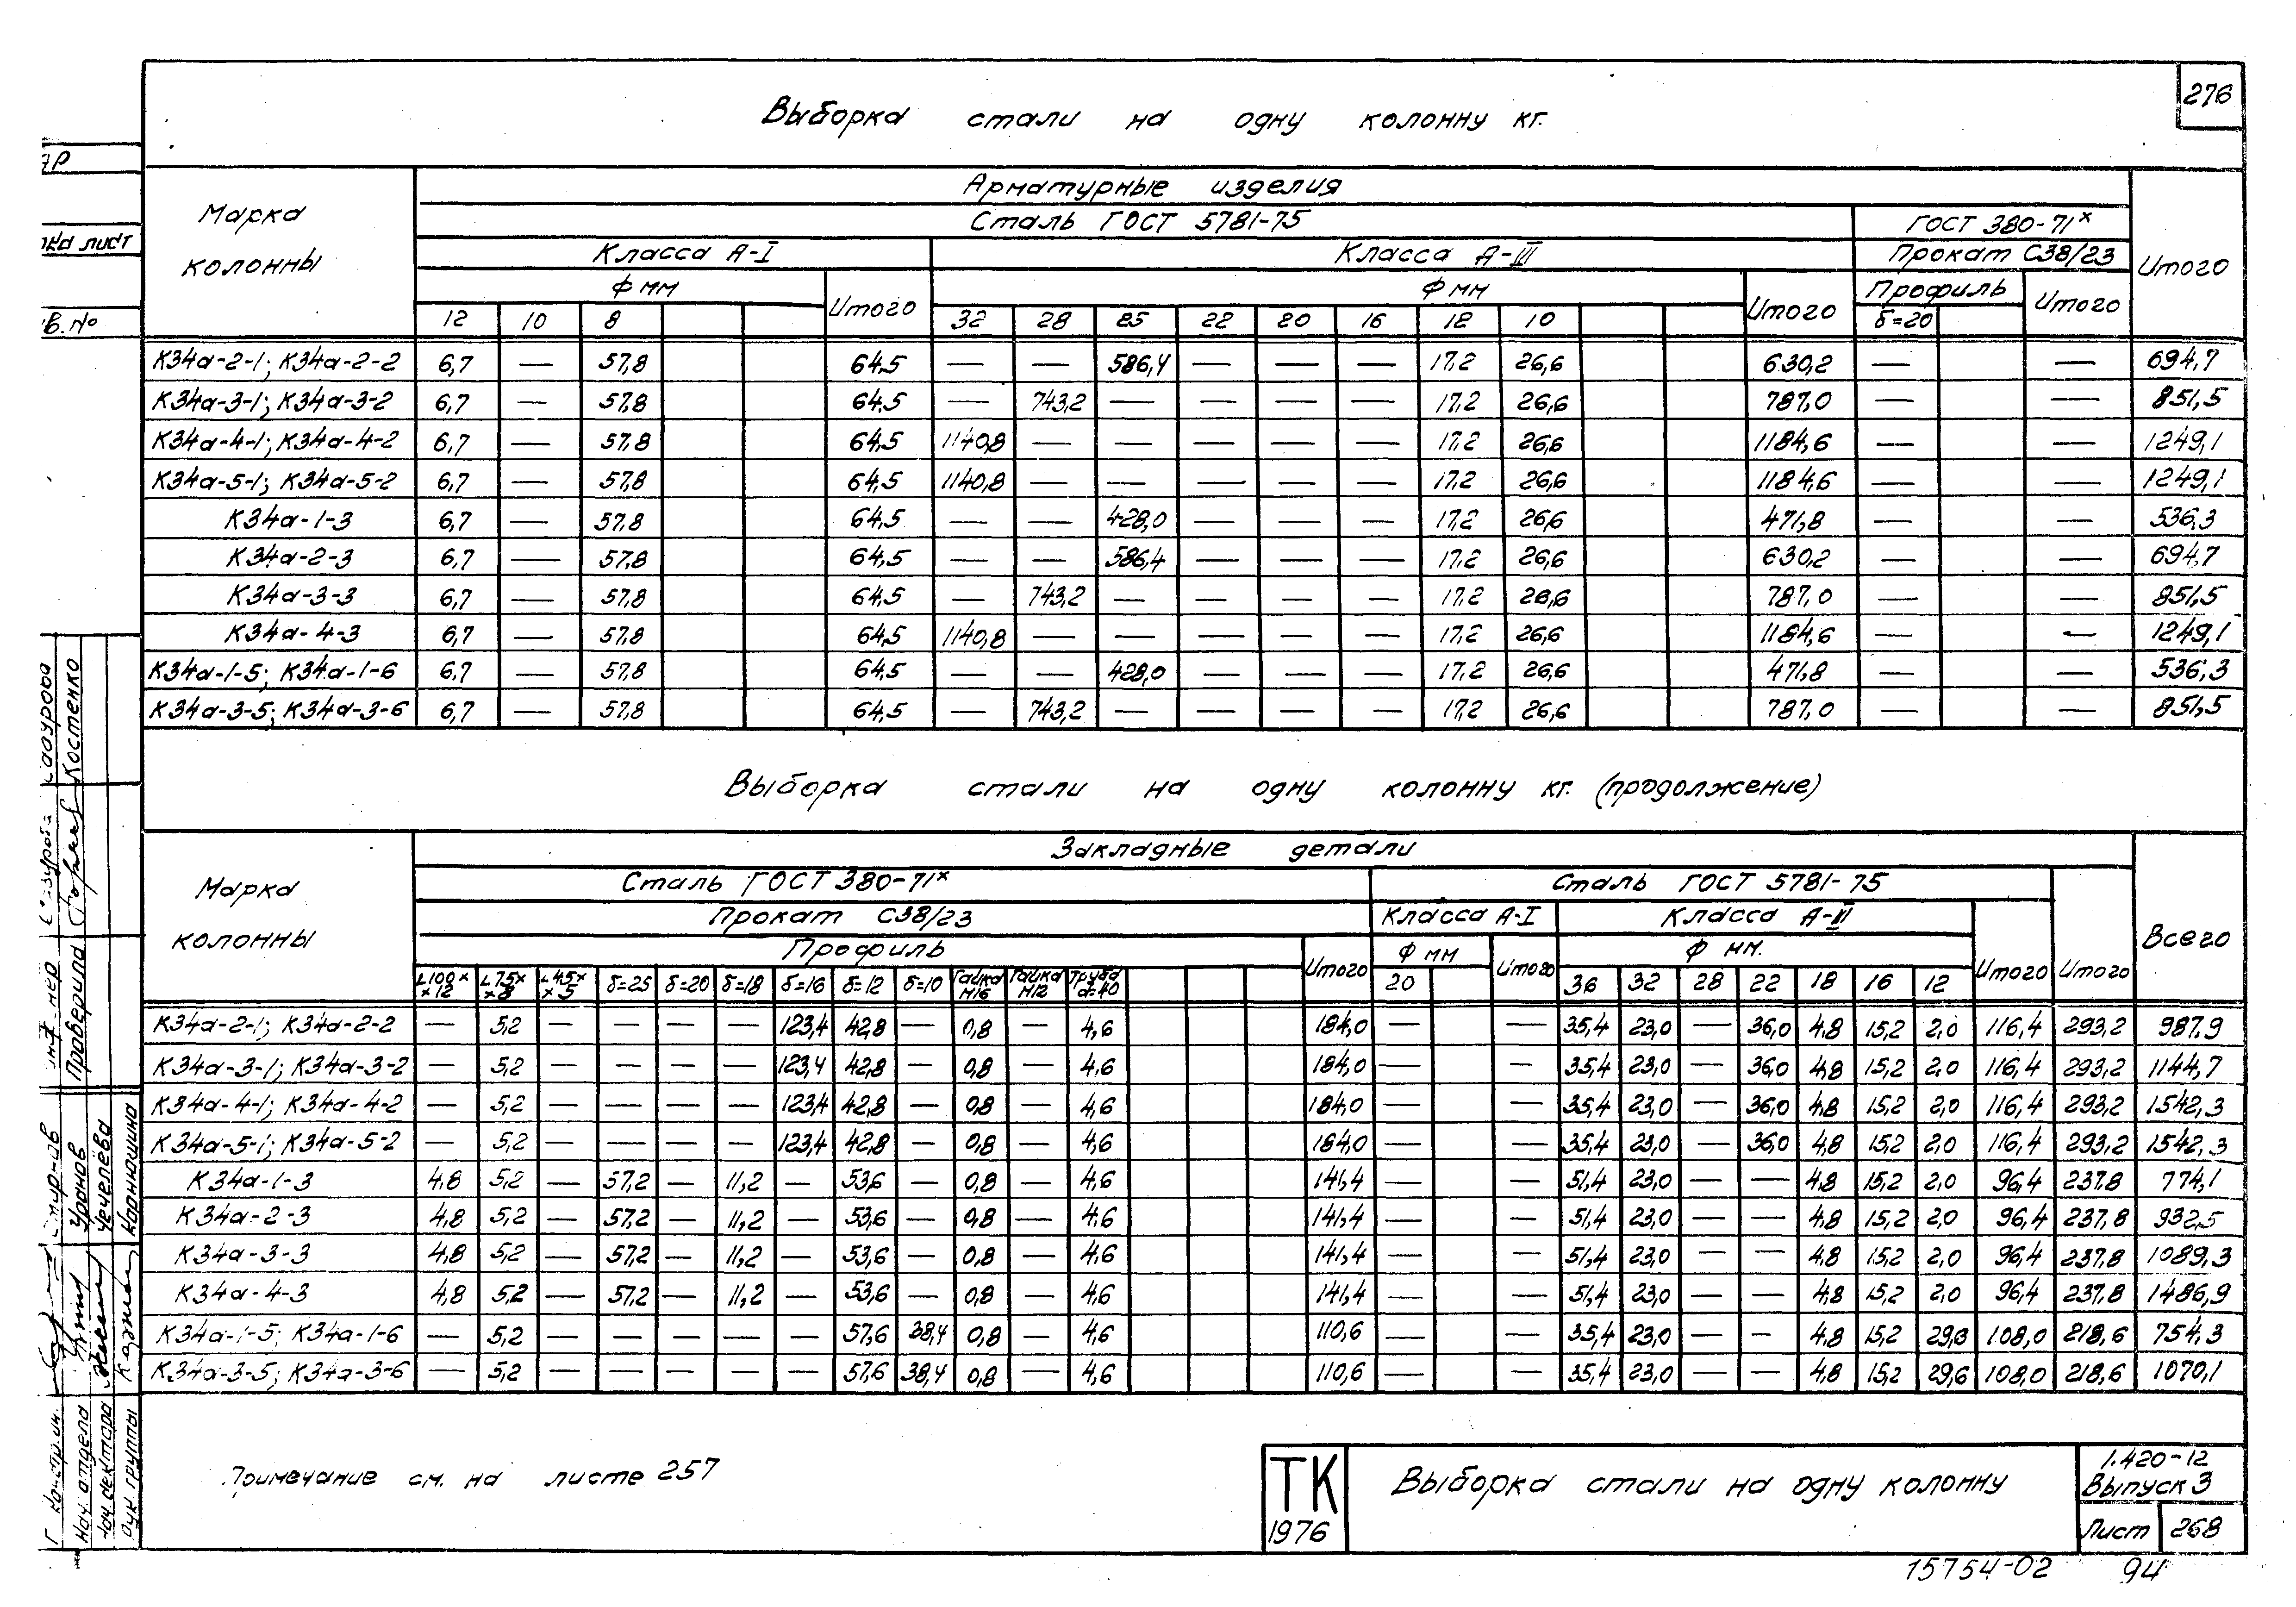 276
Выборка стали на одну колонну кг.
Марка колонны
Арматурные изделия
Итого
Сталь ГОСТ 5781-75
ГОСТ 380-71ˣ
Класса А-I
Класса А-III
Прокат С38/23
Ф мм
Итого
Ф мм
Итого
Профиль
Итого
12 10 8 32 28 25 22 20 16 12 10 δ=20
К34а-2-1; К34а-2-2 6,7 — 57,8 64,5 — — 586,4 — — — 17,2 26,6 630,2 — — 694,7
К34а-3-1; К34а-3-2 6,7 — 57,8 64,5 — 743,2 — — — — 17,2 26,6 787,0 — — 851,5
К34а-4-1; К34а-4-2 6,7 — 57,8 64,5 1140,8 — — — — — 17,2 26,6 1184,6 — — 1249,1
К34а-5-1; К34а-5-2 6,7 — 57,8 64,5 1140,8 — — — — — 17,2 26,6 1184,6 — — 1249,1
К34а-1-3 6,7 — 57,8 64,5 — — 428,0 — — — 17,2 26,6 471,8 — — 536,3
К34а-2-3 6,7 — 57,8 64,5 — — 586,4 — — — 17,2 26,6 630,2 — — 694,7
К34а-3-3 6,7 — 57,8 64,5 — 743,2 — — — — 17,2 26,6 787,0 — — 851,5
К34а-4-3 6,7 — 57,8 64,5 1140,8 — — — — — 17,2 26,6 1184,6 — — 1249,1
К34а-1-5; К34а-1-6 6,7 — 57,8 64,5 — — 428,0 — — — 17,2 26,6 471,8 — — 536,3
К34а-3-5; К34а-3-6 6,7 — 57,8 64,5 — 743,2 — — — — 17,2 26,6 787,0 — — 851,5
Выборка стали на одну колонну кг. (продолжение)
Марка колонны
Закладные детали
Всего
Сталь ГОСТ 380-71ˣ
Сталь ГОСТ 5781-75
Итого
Прокат С38/23
Класса А-I
Класса А-III
Итого
Профиль
Итого
Ф мм
Итого
Ф мм.
L100××12 L75××8 L45××5 δ=25 δ=20 δ=18 δ=16 δ=12 δ=10 Гайка М16 Гайка М12 Труба d=40 20 36 32 28 22 18 16 12
К34а-2-1; К34а-2-2 — 5,2 — — — — 123,4 42,8 — 0,8 — 4,6 184,0 — — 35,4 23,0 — 36,0 4,8 15,2 2,0 116,4 293,2 987,9
К34а-3-1; К34а-3-2 — 5,2 — — — — 123,4 42,8 — 0,8 — 4,6 184,0 — — 35,4 23,0 — 36,0 4,8 15,2 2,0 116,4 293,2 1144,7
К34а-4-1; К34а-4-2 — 5,2 — — — — 123,4 42,8 — 0,8 — 4,6 184,0 — — 35,4 23,0 — 36,0 4,8 15,2 2,0 116,4 293,2 1542,3
К34а-5-1; К34а-5-2 — 5,2 — — — — 123,4 42,8 — 0,8 — 4,6 184,0 — — 35,4 23,0 — 36,0 4,8 15,2 2,0 116,4 293,2 1542,3
К34а-1-3 4,8 5,2 — 57,2 — 11,2 — 53,6 — 0,8 — 4,6 141,4 — — 51,4 23,0 — — 4,8 15,2 2,0 96,4 237,8 774,1
К34а-2-3 4,8 5,2 — 57,2 — 11,2 — 53,6 — 0,8 — 4,6 141,4 — — 51,4 23,0 — — 4,8 15,2 2,0 96,4 237,8 932,5
К34а-3-3 4,8 5,2 — 57,2 — 11,2 — 53,6 — 0,8 — 4,6 141,4 — — 51,4 23,0 — — 4,8 15,2 2,0 96,4 237,8 1089,3
К34а-4-3 4,8 5,2 — 57,2 — 11,2 — 53,6 — 0,8 — 4,6 141,4 — — 51,4 23,0 — — 4,8 15,2 2,0 96,4 237,8 1486,9
К34а-1-5; К34а-1-6 — 5,2 — — — — — 57,6 38,4 0,8 — 4,6 110,6 — — 35,4 23,0 — — 4,8 15,2 29,6 108,0 218,6 754,3
К34а-3-5; К34а-3-6 — 5,2 — — — — — 57,6 38,4 0,8 — 4,6 110,6 — — 35,4 23,0 — — 4,8 15,2 29,6 108,0 218,6 1070,1
Примечание см. на листе 257
ТК
1976
Выборка стали на одну колонну
1.420-12
Выпуск 3
Лист 268
15754-02 94
лист
Проверила Костенко
Нач. отдела Уранов
Нач. сектора Чечелёва
Рук. группы Корнюшина